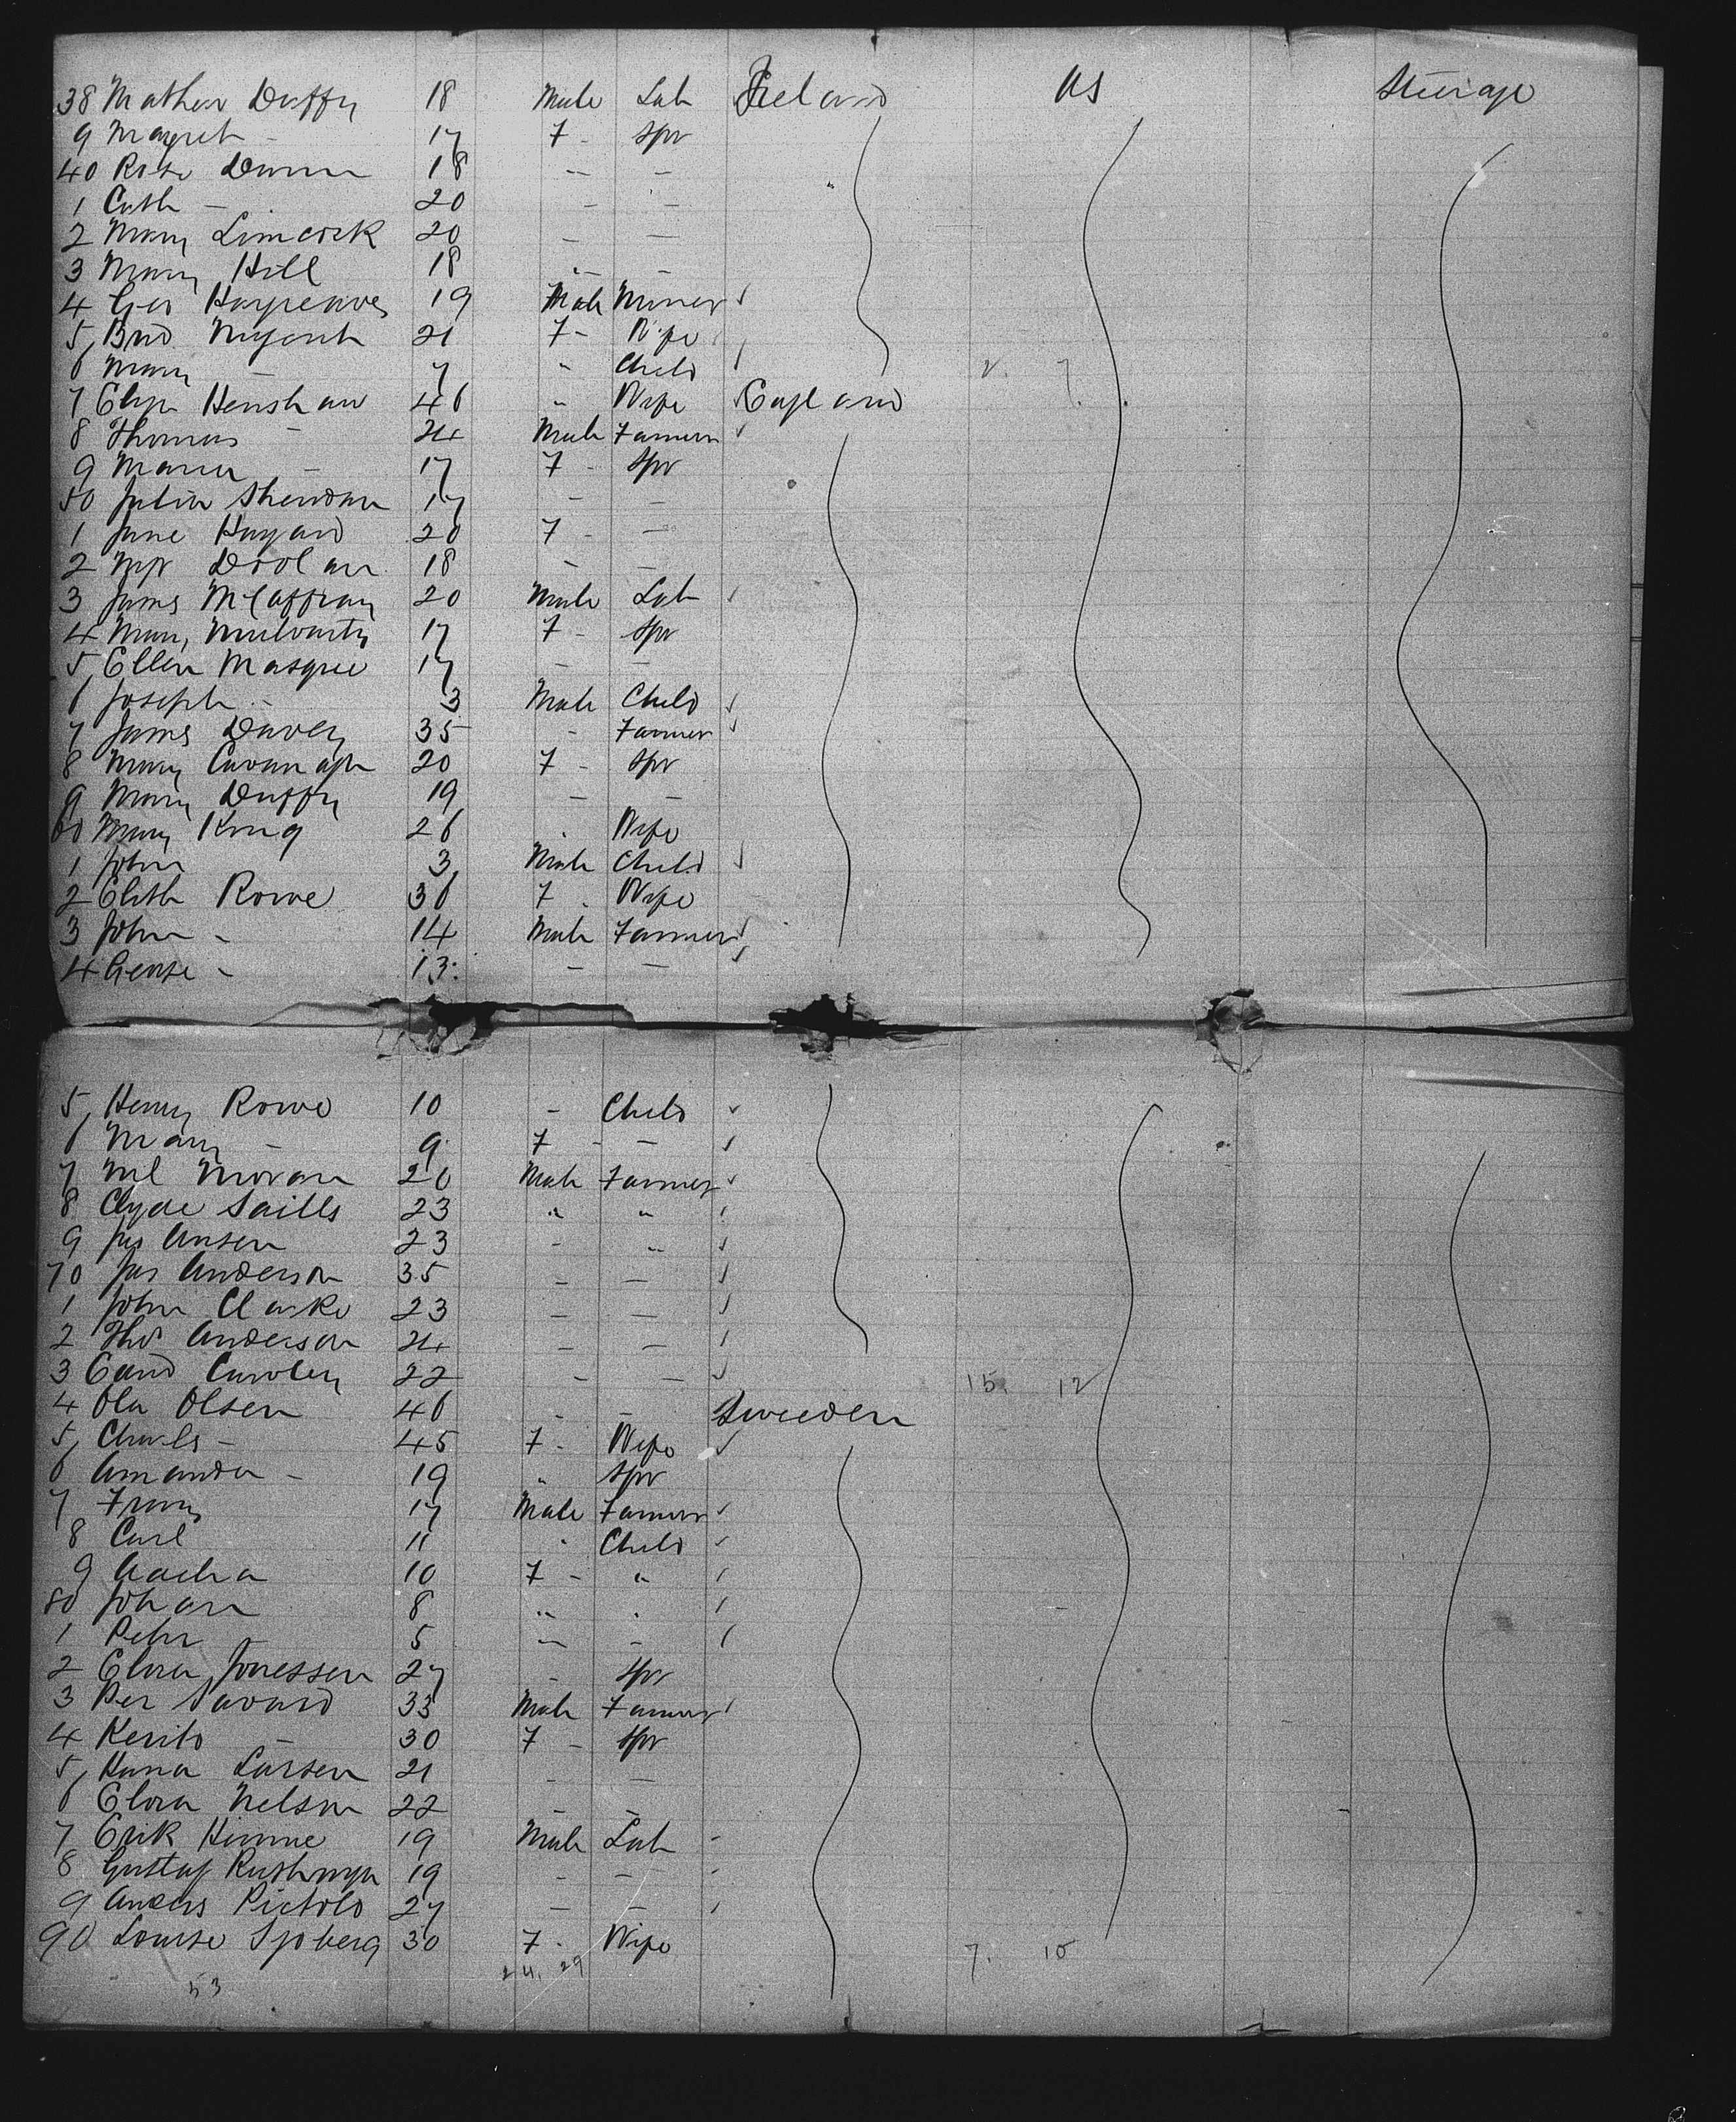 38 Mathew Duffy 18 Male Lab Ireland US Steerage
9 Magret - 17 F - Spr
40 Rose Dunn 18 - -
1 Cath - 20 - -
2 Mary Limcock 20 - -
3 Mary Hill 18 - -
4 Geo Hargreaves 19 Male Miner
5 Brid Nugent 21 F - Wife
6 Mary - 7 " Child 2. 7.
7 Eliza Henshaw 46 " Wife England
8 Thomas - 24 Male Farmer
9 Maria - 17 F - Spr
50 Julia Sheridan 17 - -
1 Jane Hayard 20 F - -
2 Mgr Doolan 18 - -
3 James McCaffray 20 Male Lab
4 Mary 17 F - Spr
5 Ellen Masgree 17 - -
6 Joseph - 3 Male Child
7 James Davey 35 - Farmer
8 Mary Cavanagh 20 F - Spr
9 Mary Duffy 19 - -
60 Mary King 26 . Wife
1 John 3 Male Child
2 Elisth Rowe 36 F . Wife
3 John - 14 Male Farmer
4 George - 13 - -
5 Henry Rowe 10 - Child
6 Mary - 9 F - -
7 Ml Moran 20 Male Farmer
8 Clyde Saills 23 " "
9 Jas Ansen 23 - "
70 Jas Anderson 35 - -
1 John Clarke 23 - -
2 Thos Anderson 24 - -
3 Curoley 22 - - 15. 12
4 Ola Olsen 46 - - Sweeden
5 Charls - 45 F - Wife
6 Amanda - 19 " Spr
7 Frans 17 Male Farmer
8 Carl 11 " Child
9 10 F - "
80 Johan 8 " "
1 Pehr - 5 - -
2 Elora Jonessen 27 - Spr
3 Per Savard 33 Male Farmer
4 Kersto - 30 F - Spr
5 Hana Larsen 21 - -
6 Elora Nelson 22 - -
7 Erik Himne 19 Male Lab
8 Gustaf 19 - -
9 Anders Pictolo 27 - -
90 Louise Sjoberg 30 F - Wife 7. 10
53 24. 29